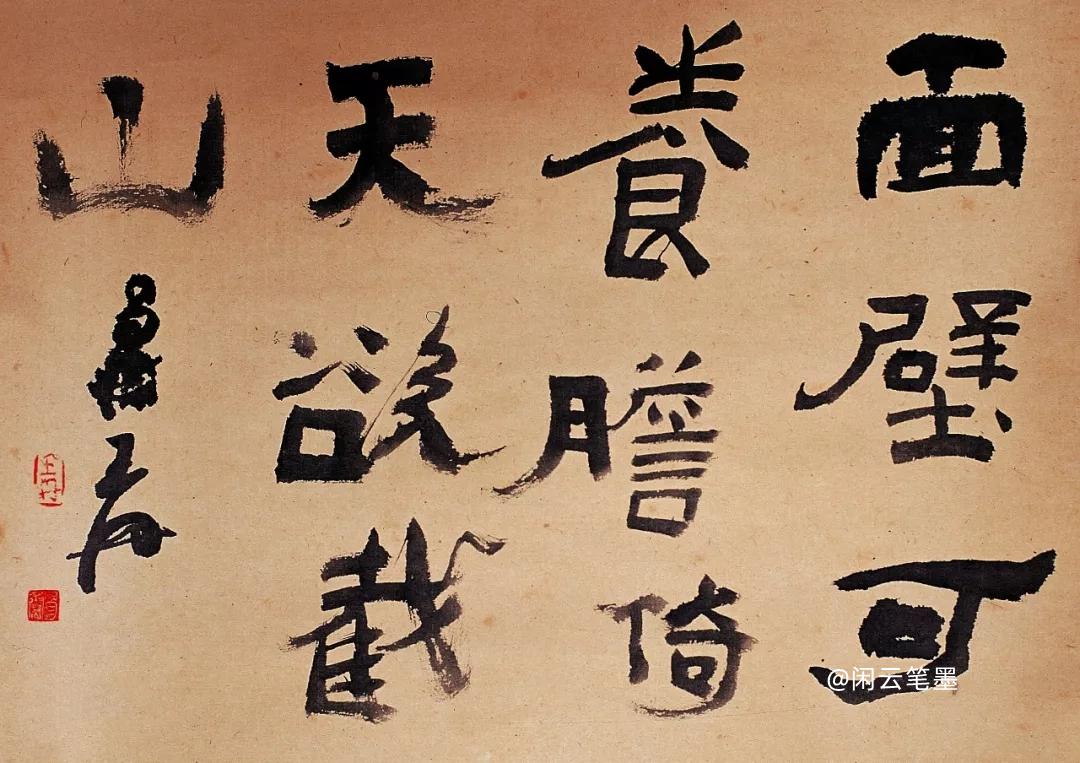 面壁可
養膽倚
天欲截
山
@闲云笔墨